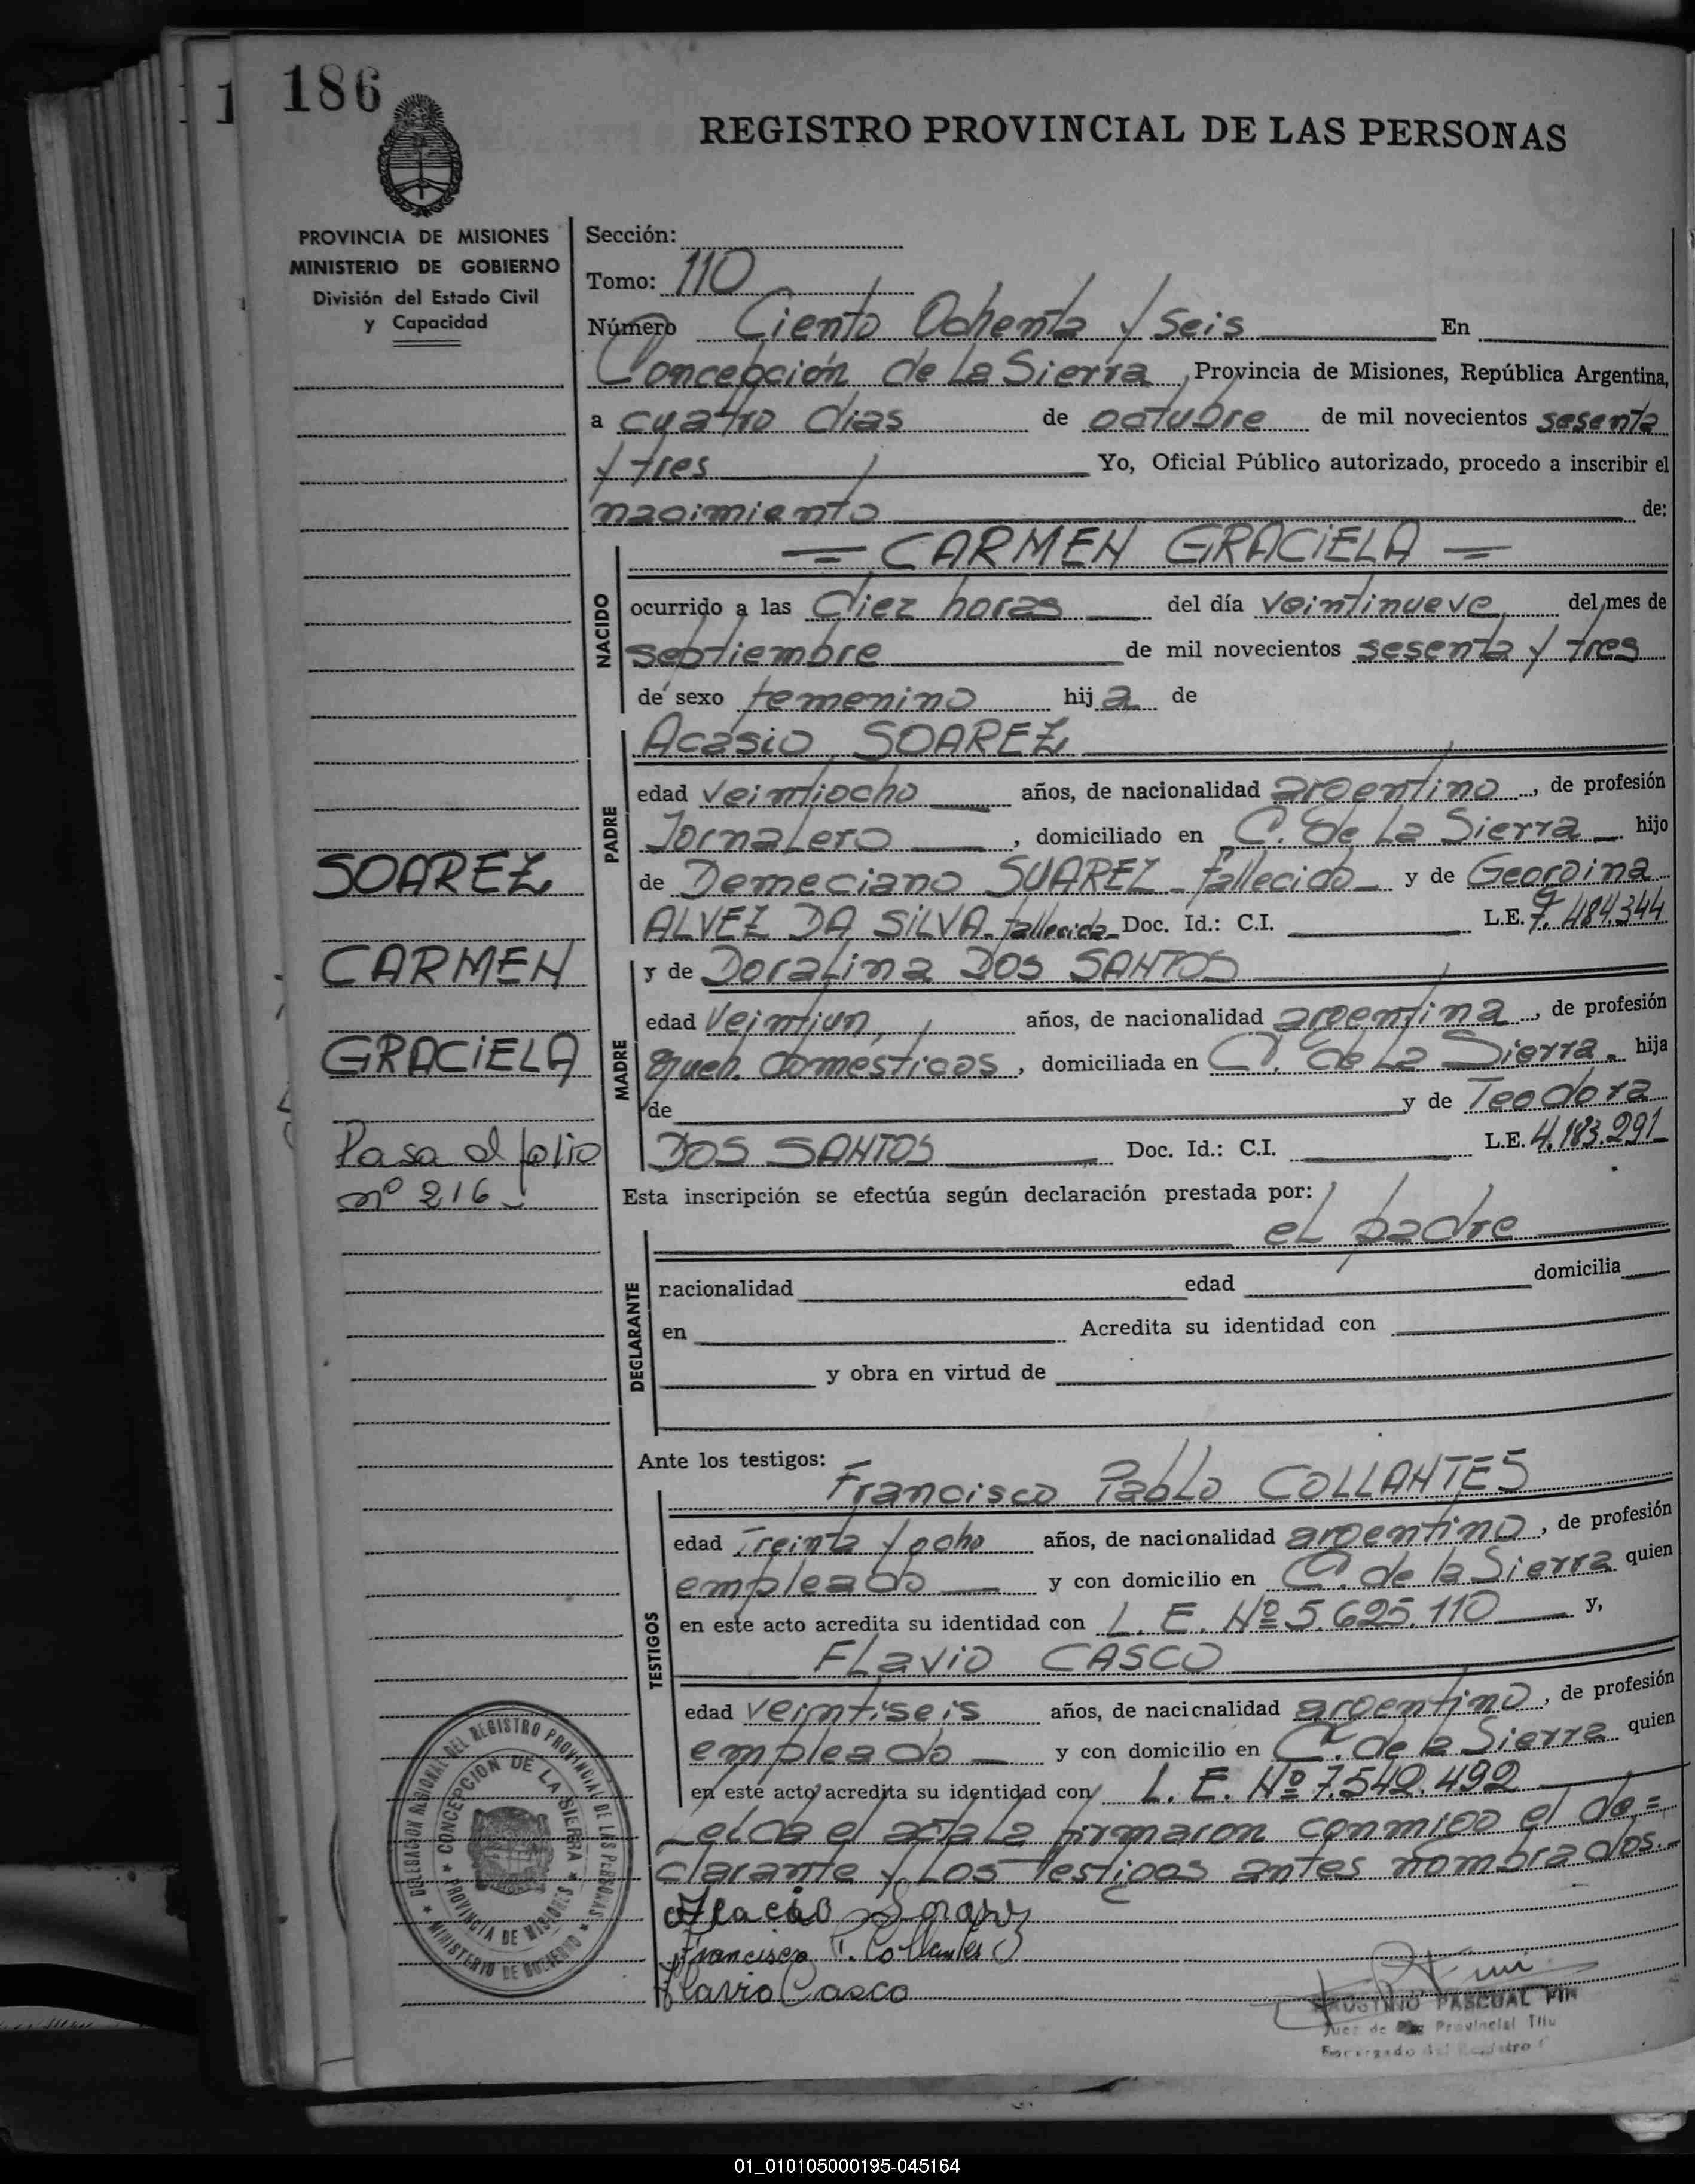 186
REGISTRO PROVINCIAL DE LAS PERSONAS
PROVINCIA DE MISIONES
MINISTERIO DE GOBIERNO
División del Estado Civil
y Capacidad
SOAREZ
CARMEN
GRACIELA
Pasa al folio
nº 216
Sección:
Tomo: 110
Número Ciento Ochenta y Seis En
Concepción de La Sierra, Provincia de Misiones, República Argentina,
a cuatro dias de octubre de mil novecientos sesenta
y tres Yo, Oficial Público autorizado, procedo a inscribir el
nacimiento de:
= CARMEN GRACIELA =
NACIDO
ocurrido a las diez horas del día veintinueve del mes de
septiembre de mil novecientos sesenta y tres
de sexo femenino hija de
PADRE
Acasio SOAREZ
edad veintiocho años, de nacionalidad argentino, de profesión
Jornalero, domiciliado en C. de La Sierra hijo
de Demeciano SUAREZ - fallecido - y de Georgina
ALVEZ DA SILVA - fallecida - Doc. Id.: C.I. L.E. 7.484.344
MADRE
y de Doralina DOS SANTOS
edad veintiun, años, de nacionalidad argentina, de profesión
queh. domesticos, domiciliada en C. de La Sierra. hija
de y de Teodora
DOS SANTOS Doc. Id.: C.I. L.E. 4.183.291
Esta inscripción se efectúa según declaración prestada por:
el padre
DECLARANTE
nacionalidad edad domicilia
en Acredita su identidad con
y obra en virtud de
Ante los testigos:
TESTIGOS
Francisco Pablo COLLANTES
edad Treinta y ocho años, de nacionalidad argentino, de profesión
empleado y con domicilio en C. de la Sierra quien
en este acto acredita su identidad con L. E. Nº 5.625.110 y,
Flavio CASCO
edad veintiseis años, de nacionalidad argentino, de profesión
empleado y con domicilio en C. de la Sierra quien
en este acto acredita su identidad con L. E. Nº 7.542.492
Leida el acta la firmaron conmigo el de=
clarante y Los Testigos antes nombrados.-
Francisco P. Collantes
Flavio Casco
DELEGACION REGIONAL DEL REGISTRO PROVINCIAL DE LAS PERSONAS
MINISTERIO DE GOBIERNO
CONCEPCION DE LA SIERRA
PROVINCIA DE MISIONES
PASCUAL
Juez de Paz Provincial
Encargado del Registro
01_010105000195-045164